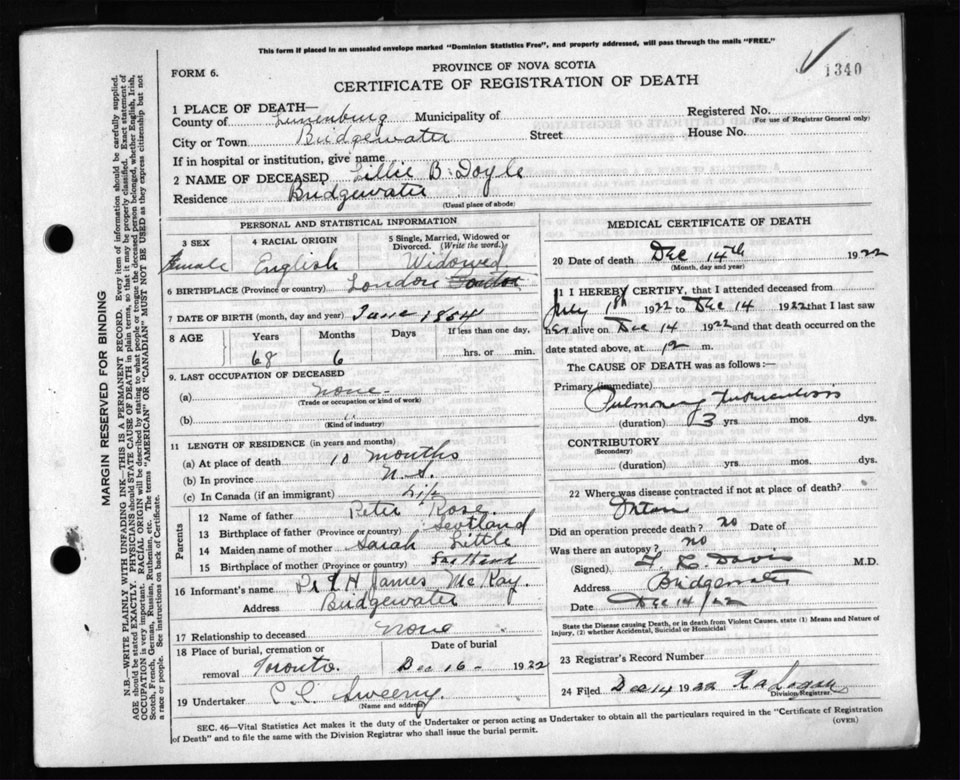 This form if placed in an unsealed envelope marked "Dominion Statistics Free", and properly addressed, will pass through the mails "FREE."
1340
PROVINCE OF NOVA SCOTIA
FORM 6.
CERTIFICATE OF REGISTRATION OF DEATH
1 PLACE OF DEATH—
County of Lunenburg Municipality of
Registered No.
(For use of Registrar General only)
City or Town Bridgewater Street House No.
If in hospital or institution, give name
2 NAME OF DECEASED Lillie B. Doyle
Residence Bridgewater
(Usual place of abode)
PERSONAL AND STATISTICAL INFORMATION
3 SEX 4 RACIAL ORIGIN 5 Single, Married, Widowed or Divorced. (Write the word.)
Female English Widowed
6 BIRTHPLACE (Province or country) London
7 DATE OF BIRTH (month, day and year) June 1854
8 AGE Years Months Days If less than one day,
68 6 hrs. or min.
9. LAST OCCUPATION OF DECEASED
(a) none
(Trade or occupation or kind of work)
(b) "
(Kind of industry)
11 LENGTH OF RESIDENCE (in years and months)
(a) At place of death 10 months
(b) In province N.S.
(c) In Canada (if an immigrant) Life
Parents
12 Name of father Peter Rose
13 Birthplace of father (Province or country) Scotland
14 Maiden name of mother Sarah Little
15 Birthplace of mother (Province or country)
16 Informant's name James McKay.
Address Bridgewater
17 Relationship to deceased none
18 Place of burial, cremation or removal Date of burial
Toronto. Dec 16 - 1922
19 Undertaker C. C. Sweeny.
(Name and address)
MEDICAL CERTIFICATE OF DEATH
20 Date of death Dec 14th 1922
(Month, day and year)
21 I HEREBY CERTIFY, that I attended deceased from
July 1922 to Dec 14 1922 that I last saw
her alive on Dec 14 1922 and that death occurred on the
date stated above, at 12 m.
The CAUSE OF DEATH was as follows:—
Primary (immediate)
Pulmonary tuberculosis
(duration) 3 yrs. mos. dys.
CONTRIBUTORY
(Secondary)
(duration) yrs. mos. dys.
22 Where was disease contracted if not at place of death?
Did an operation precede death? no Date of
Was there an autopsy? no
(Signed) Davis M.D.
Address Bridgewater
Date Dec 14/22
State the Disease causing Death, or in death from Violent Causes, state (1) Means and Nature of
Injury, (2) whether Accidental, Suicidal or Homicidal
23 Registrar's Record Number
24 Filed Dec 14 1922
Division Registrar.
SEC. 46—Vital Statistics Act makes it the duty of the Undertaker or person acting as Undertaker to obtain all the particulars required in the "Certificate of Registration
of Death" and to file the same with the Division Registrar who shall issue the burial permit.
(OVER)
MARGIN RESERVED FOR BINDING
N.B.—WRITE PLAINLY WITH UNFADING INK—THIS IS A PERMANENT RECORD. Every item of information should be carefully supplied.
AGE should be stated EXACTLY. PHYSICIANS should STATE CAUSE OF DEATH in plain terms, so that it may be properly classified. Exact statement of
OCCUPATION is very important. RACIAL ORIGIN will be described by stating to what people or tongue the deceased person belonged, whether English, Irish,
Scotch, French, German, Russian, Ruthenian, etc. The terms "AMERICAN" or "CANADIAN" MUST NOT BE USED as they express citizenship but not
a race or people. See instructions on back of Certificate.